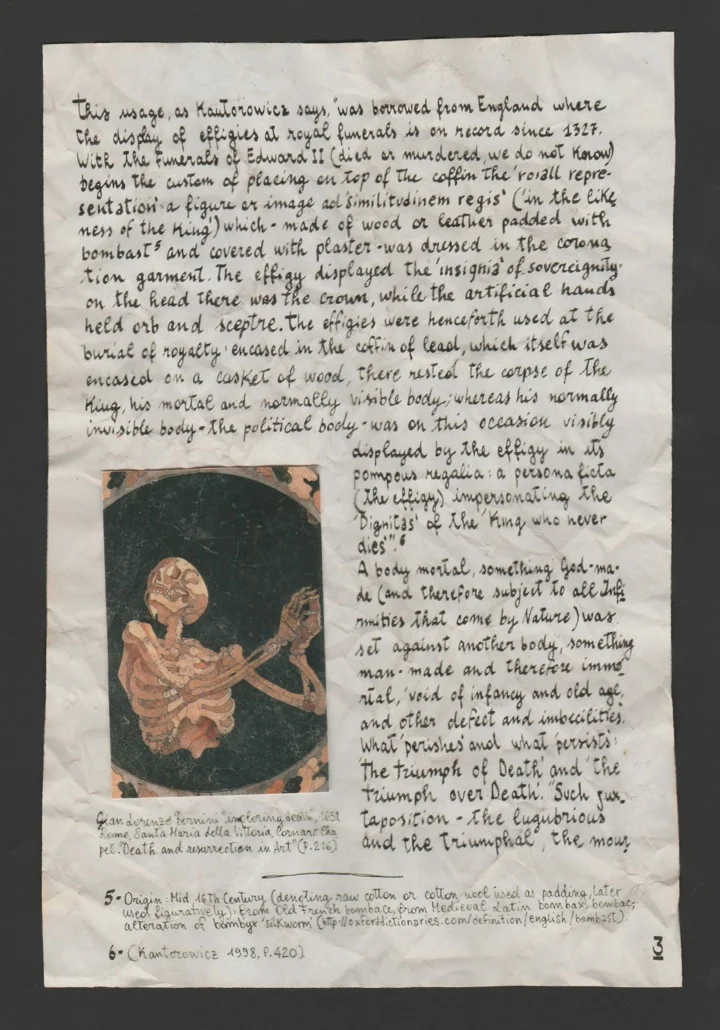 This usage, as Kantorowicz says, "was borrowed from England where
the display of effigies at royal funerals is on record since 1327.
With the Funerals of Edward II (died or murdered, we do not Know)
begins the custom of placing on top of the coffin the 'roiall repre-
sentation' a figure or image ad similitudinem regis' ('in the like
ness of the King') which - made of wood or leather padded with
bombast⁵ and covered with plaster - was dressed in the corona
tion garment. The effigy displayed the 'insignia' of sovereignty:
on the head there was the crown, while the artificial hands
held orb and sceptre. The effigies were henceforth used at the
burial of royalty: encased in the coffin of lead, which itself was
encased on a casket of wood, there rested the corpse of the
King, his mortal and normally visible body; whereas his normally
invisible body - the political body - was on this occasion visibly
displayed by the effigy in its
pompous regalia: a persona ficta
(the effigy) impersonating the
'Dignitas' of the 'King who never
dies'".⁶
A body mortal, something God-ma-
de (and therefore subject to all Infi
rmities that come by Nature) was
set against another body, something
man-made and therefore immo
rtal, 'void of infancy and old age,
and other defect and imbecilities.
What 'perishes' and what 'persists':
'the triumph of Death' and 'the
triumph over Death'. "Such jux-
taposition - the lugubrious
and the Triumphal, the mour
Gian Lorenzo Bernini "imploring death", 1651
Rome, Santa Maria della Vittoria, Cornaro Cha
pel. "Death and resurrection in Art" (P. 216)
5- Origin: Mid 16th Century (denoting raw cotton or cotton wool used as padding, later
used figuratively): from Old French bombace, from Medieval Latin bombax, bombac;
alteration of bombyx 'silkworm' (http://oxforddictionaries.com/definition/english/bombast).
6- (Kantorowicz 1998, P. 420)
3